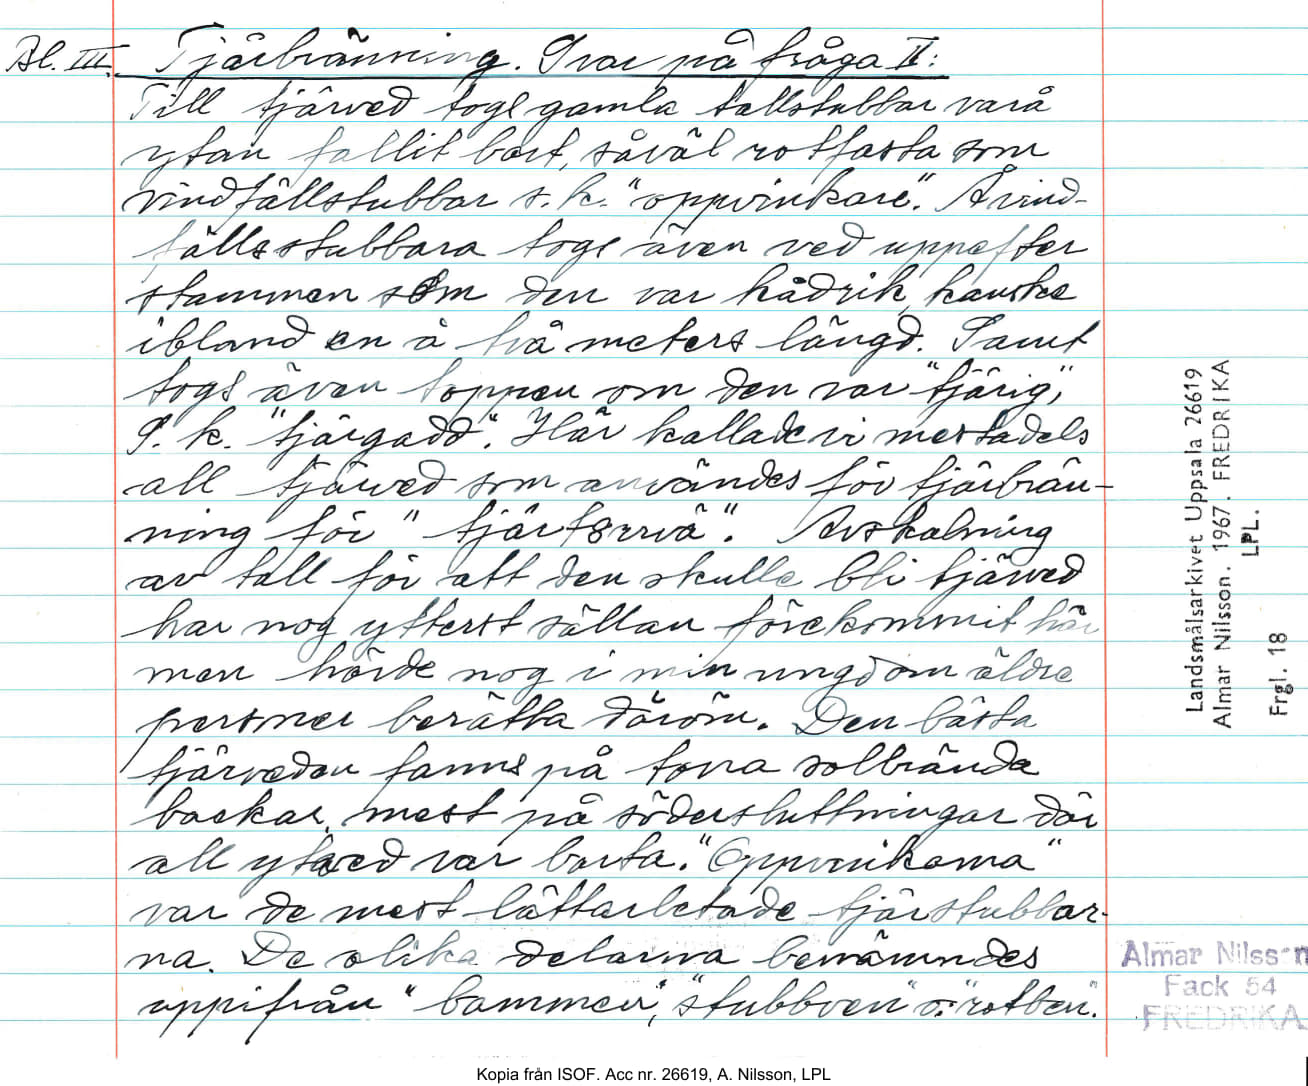 Bl. III. Tjärbränning. Svar på fråga II:
Till tjärved togs gamla tallstubbar varå
ytan fallit bort, såväl rotfasta som
vindfällstubbar s.k. "oppvinkare". Å vind-
fällsstubbara togs även ved uppefter
stammen som den var kådrik, kanske
ibland en å två meters längd. Samt
togs även toppen om den var "tjärig",
S.k. "tjärgadd". Här kallade vi mestadels
all tjärved som användes för tjärbrän-
ning för " tjärtörvä". Avskalning
av tall för att den skulle bli tjärved
har nog ytterst sällan förekommit här
men hörde nog i min ungdom äldre
personer berätta därom. Den bästa
tjärveden fanns på torra solbrända
backar, mest på södersluttningar där
all ytved var borta. "Oppvinkarna"
var de mest lättarbetade tjärstubbar-
na. De olika delarna benämndes
uppifrån "bammen", "stubbven" o. "rotben".
Landsmålsarkivet Uppsala 26619
Almar Nilsson. 1967. FREDRIKA
LPL.
Frgl. 18
Almar Nilsson
Fack 54
FREDRIKA
Kopia från ISOF. Acc nr. 26619, A. Nilsson, LPL